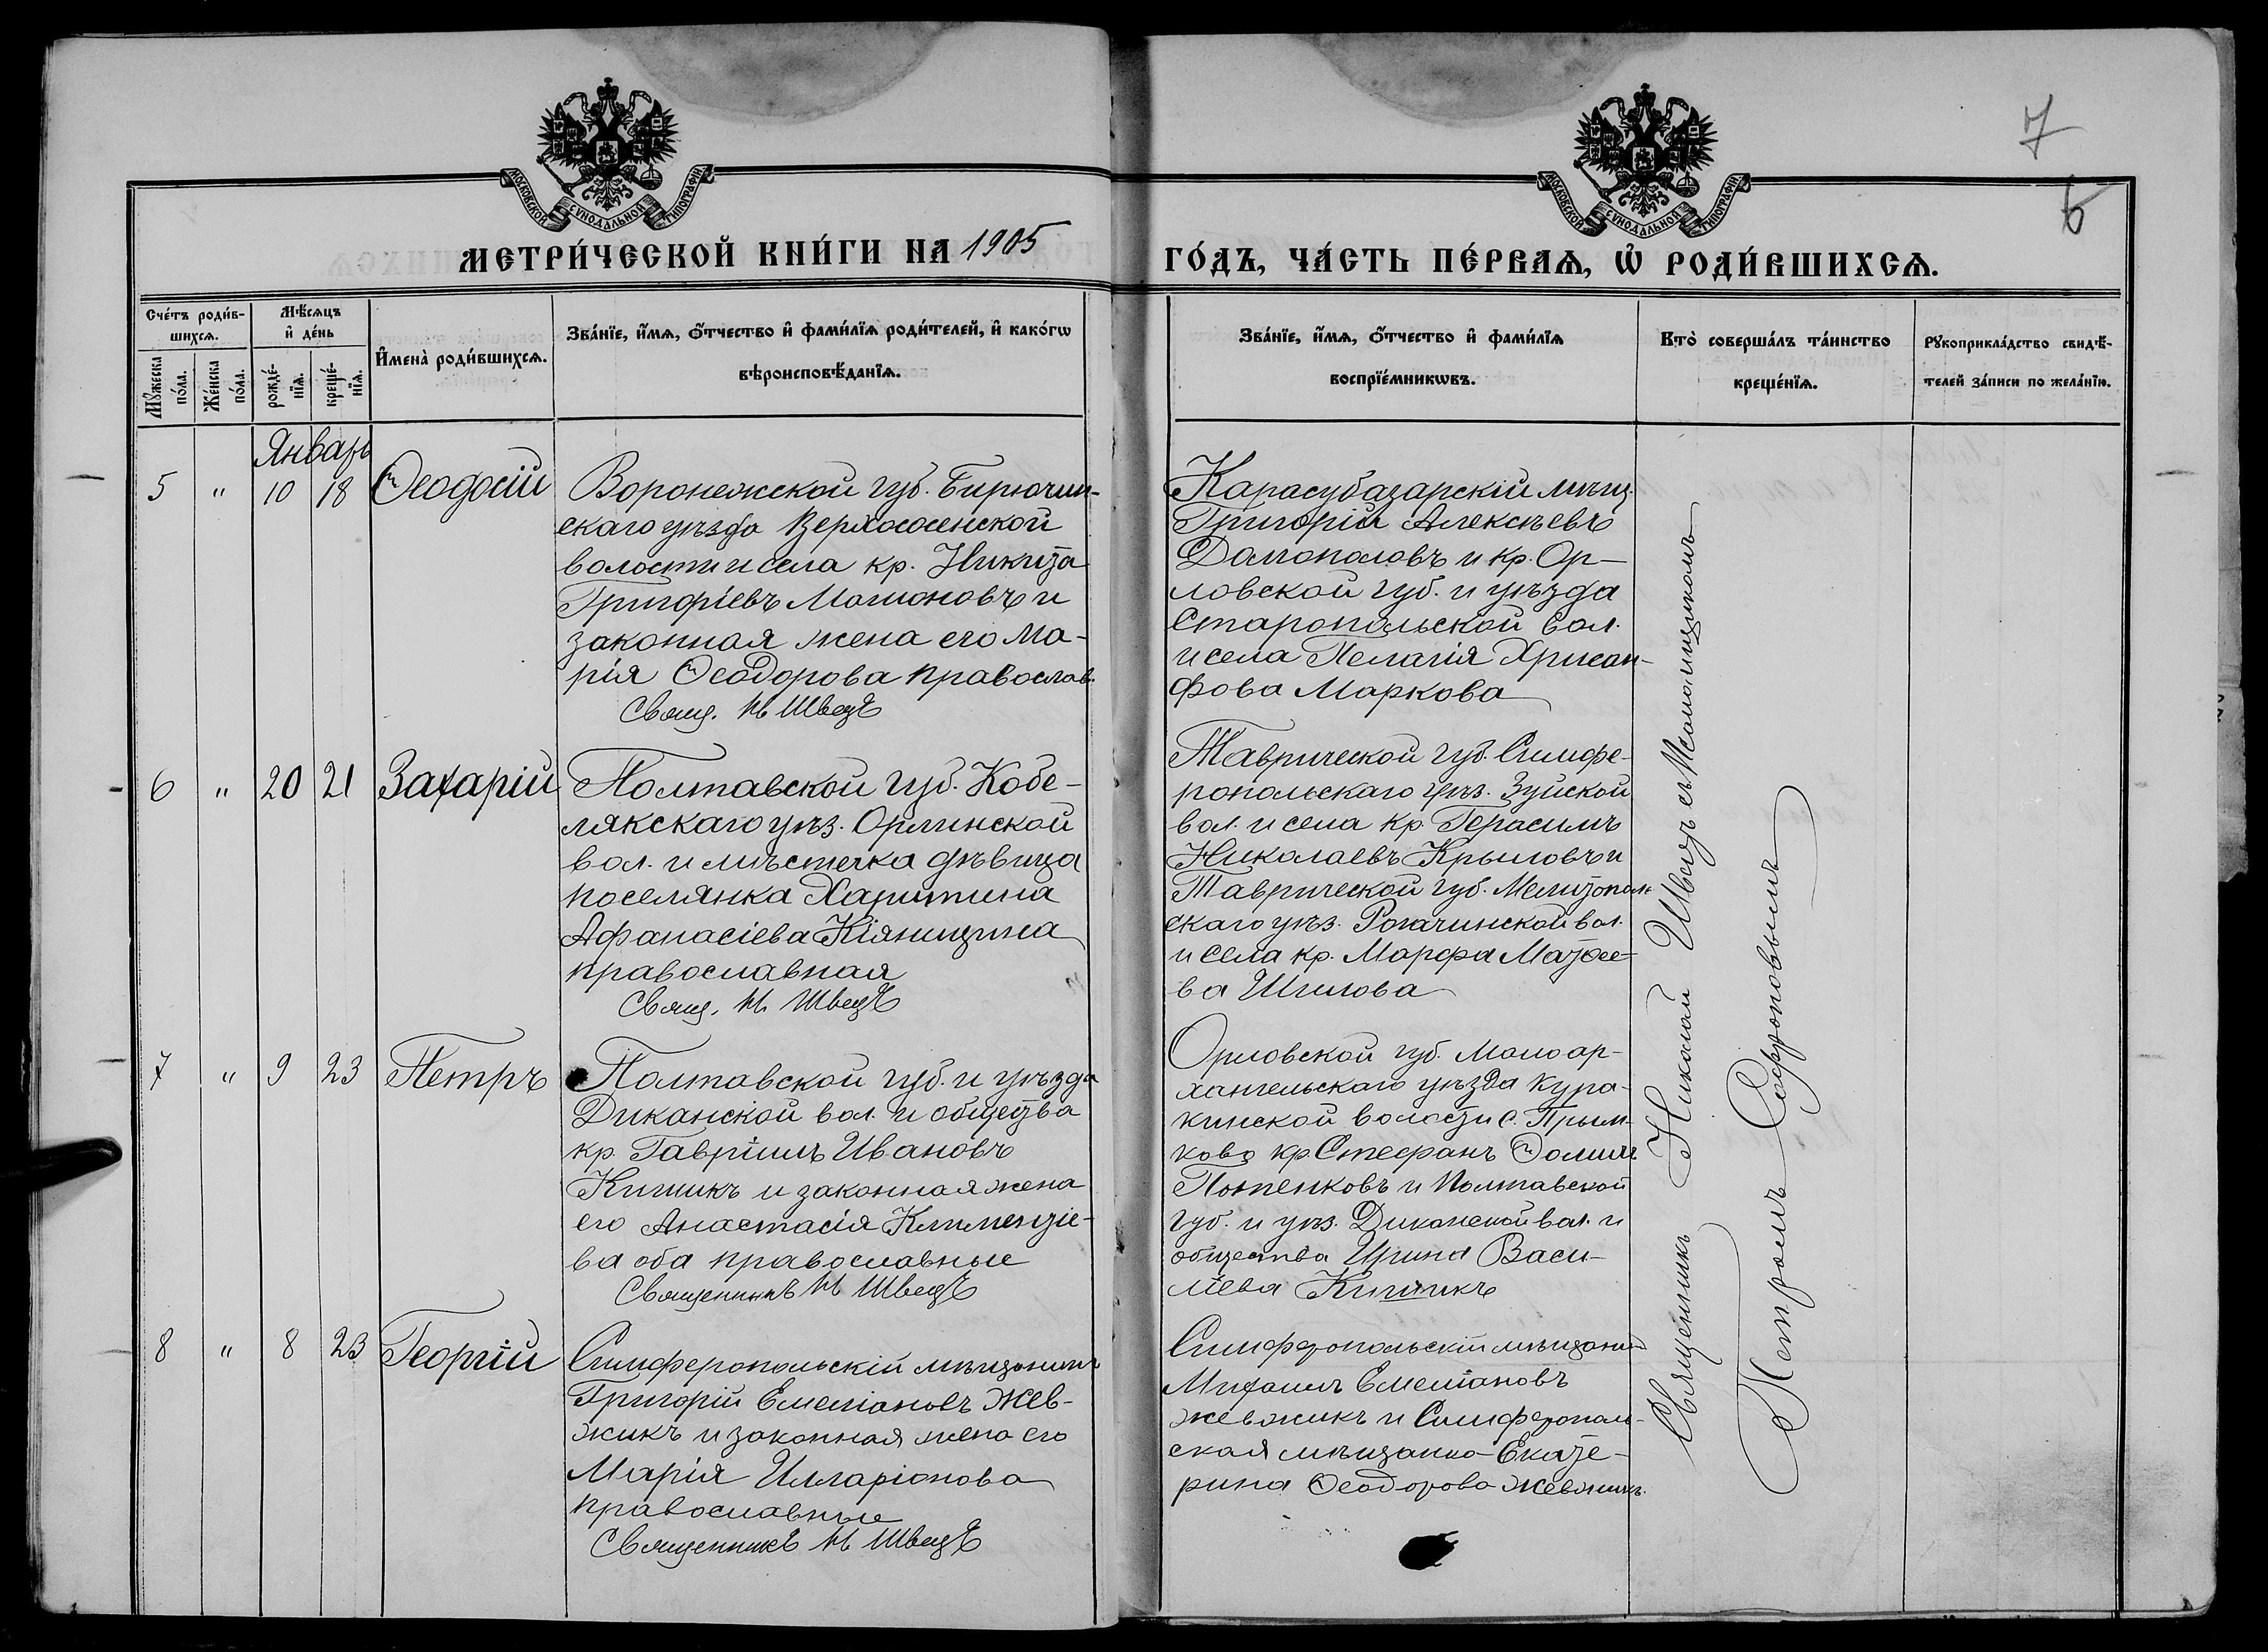 7
6
МОСКОВСКОЙ СѴНОДАЛЬНОЙ ТИПОГРАФІИ
МОСКОВСКОЙ СѴНОДАЛЬНОЙ ТИПОГРАФІИ
МЕТРИ́ЧЕСКОЙ КНИ́ГИ НА 1905
ГО́ДЪ, ЧА́СТЬ ПЕ́РВАѦ, Ѡ РОДИ́ВШИХСѦ.
Сче́тъ роди́в-
шихсѧ.
Мꙋжеска по́ла.
Же́нска по́ла.
Мѣ́сѧцъ
и҆ де́нь
рожде́-
нїѧ.
креще́-
нїѧ.
И҆мена̀ роди́вшихсѧ.
Зва́нїе, и҆́мѧ, ѻ҆́тчество и҆ фами́лїѧ роди́телей, и҆ како́гѡ
вѣроисповѣ́данїѧ.
Зва́нїе, и҆́мѧ, ѻ҆́тчество и҆ фами́лїѧ
воспрїе́мникѡвъ.
Кто̀ соверша́лъ та́инство
креще́нїѧ.
Рꙋкоприкла́дство свидѣ́-
телей за́писи по жела́нїю.
Январь
5 " 10 18 Ѳеодосій
Воронежской губ. Бирючин-
скаго уѣзда Верхососенской
волости и села кр. Никита
Григоріевъ и
законная жена его Ма-
рія Ѳеодорова православ.
Свящ. Н Швецъ
Карасубазарскій мѣщ.
Григорій Алексѣевъ
Домополовъ и кр. Ор-
ловской губ. и уѣзда
Старопольской вол.
и села Пелагія Хрисан-
фова Маркова
6 " 20 21 Захарій
Полтавской губ. Кобе-
лякскаго уѣз. Орлинской
вол. и мѣстечка дѣвица
поселянка Харитина
Афанасіева Кіяницина
православная
Свящ. Н. Швецъ
Таврической губ. Симфе-
ропольскаго уѣз. Зуйской
вол. и села кр. Герасимъ
Николаевъ Крыловъ и
Таврической губ. Мелитополь
скаго уѣз. Рогачинской вол.
и села кр. Марфа Матфее-
ва Шилова
7 " 9 23 Петръ
Полтавской губ. и уѣзда
Диканской вол. и общества
кр. Гавріилъ Ивановъ
Кишикъ и законная жена
его Анастасія Климентіе-
ва оба православные
Священникъ Н Швецъ
Орловской губ. Малоар-
хангельскаго уѣзда Кура-
кинской волости с.
кр Стефанъ
и Полтавской
губ. и уѣз. Диканской вол. и
общества Ирина Васи-
ліева Кишикъ
8 " 8 23 Георгій
Симферопольскій мѣщанинъ
Григорій Емеліановъ Жев-
жикъ и законная жена его
Марія Илларіонова
православные
Священникъ Н Швецъ
Симферопольскій мѣщанин
Михаилъ Емеліановъ
Жевжикъ и Симферополь-
ская мѣщанка Екате-
рина Ѳеодорова Жевжикъ.
Священникъ Николай Швецъ съ Псаломщикомъ
Петромъ Софроновымъ